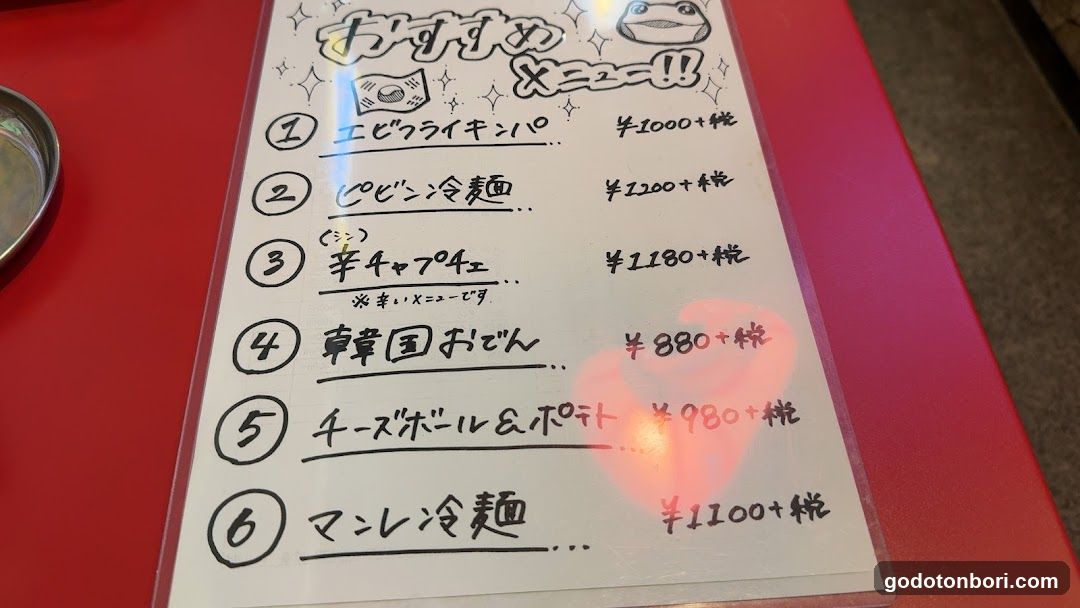 おすすめ
メニュー!!
① エビフライキンパ ¥1000+税
② ピビン冷麺 ¥1200+税
(シン)
③ 辛チャプチェ ¥1180+税
※辛いメニューです
④ 韓国おでん ¥880+税
⑤ チーズボール&ポテト ¥980+税
⑥ マンレ冷麺 ¥1100+税
godotonbori.com